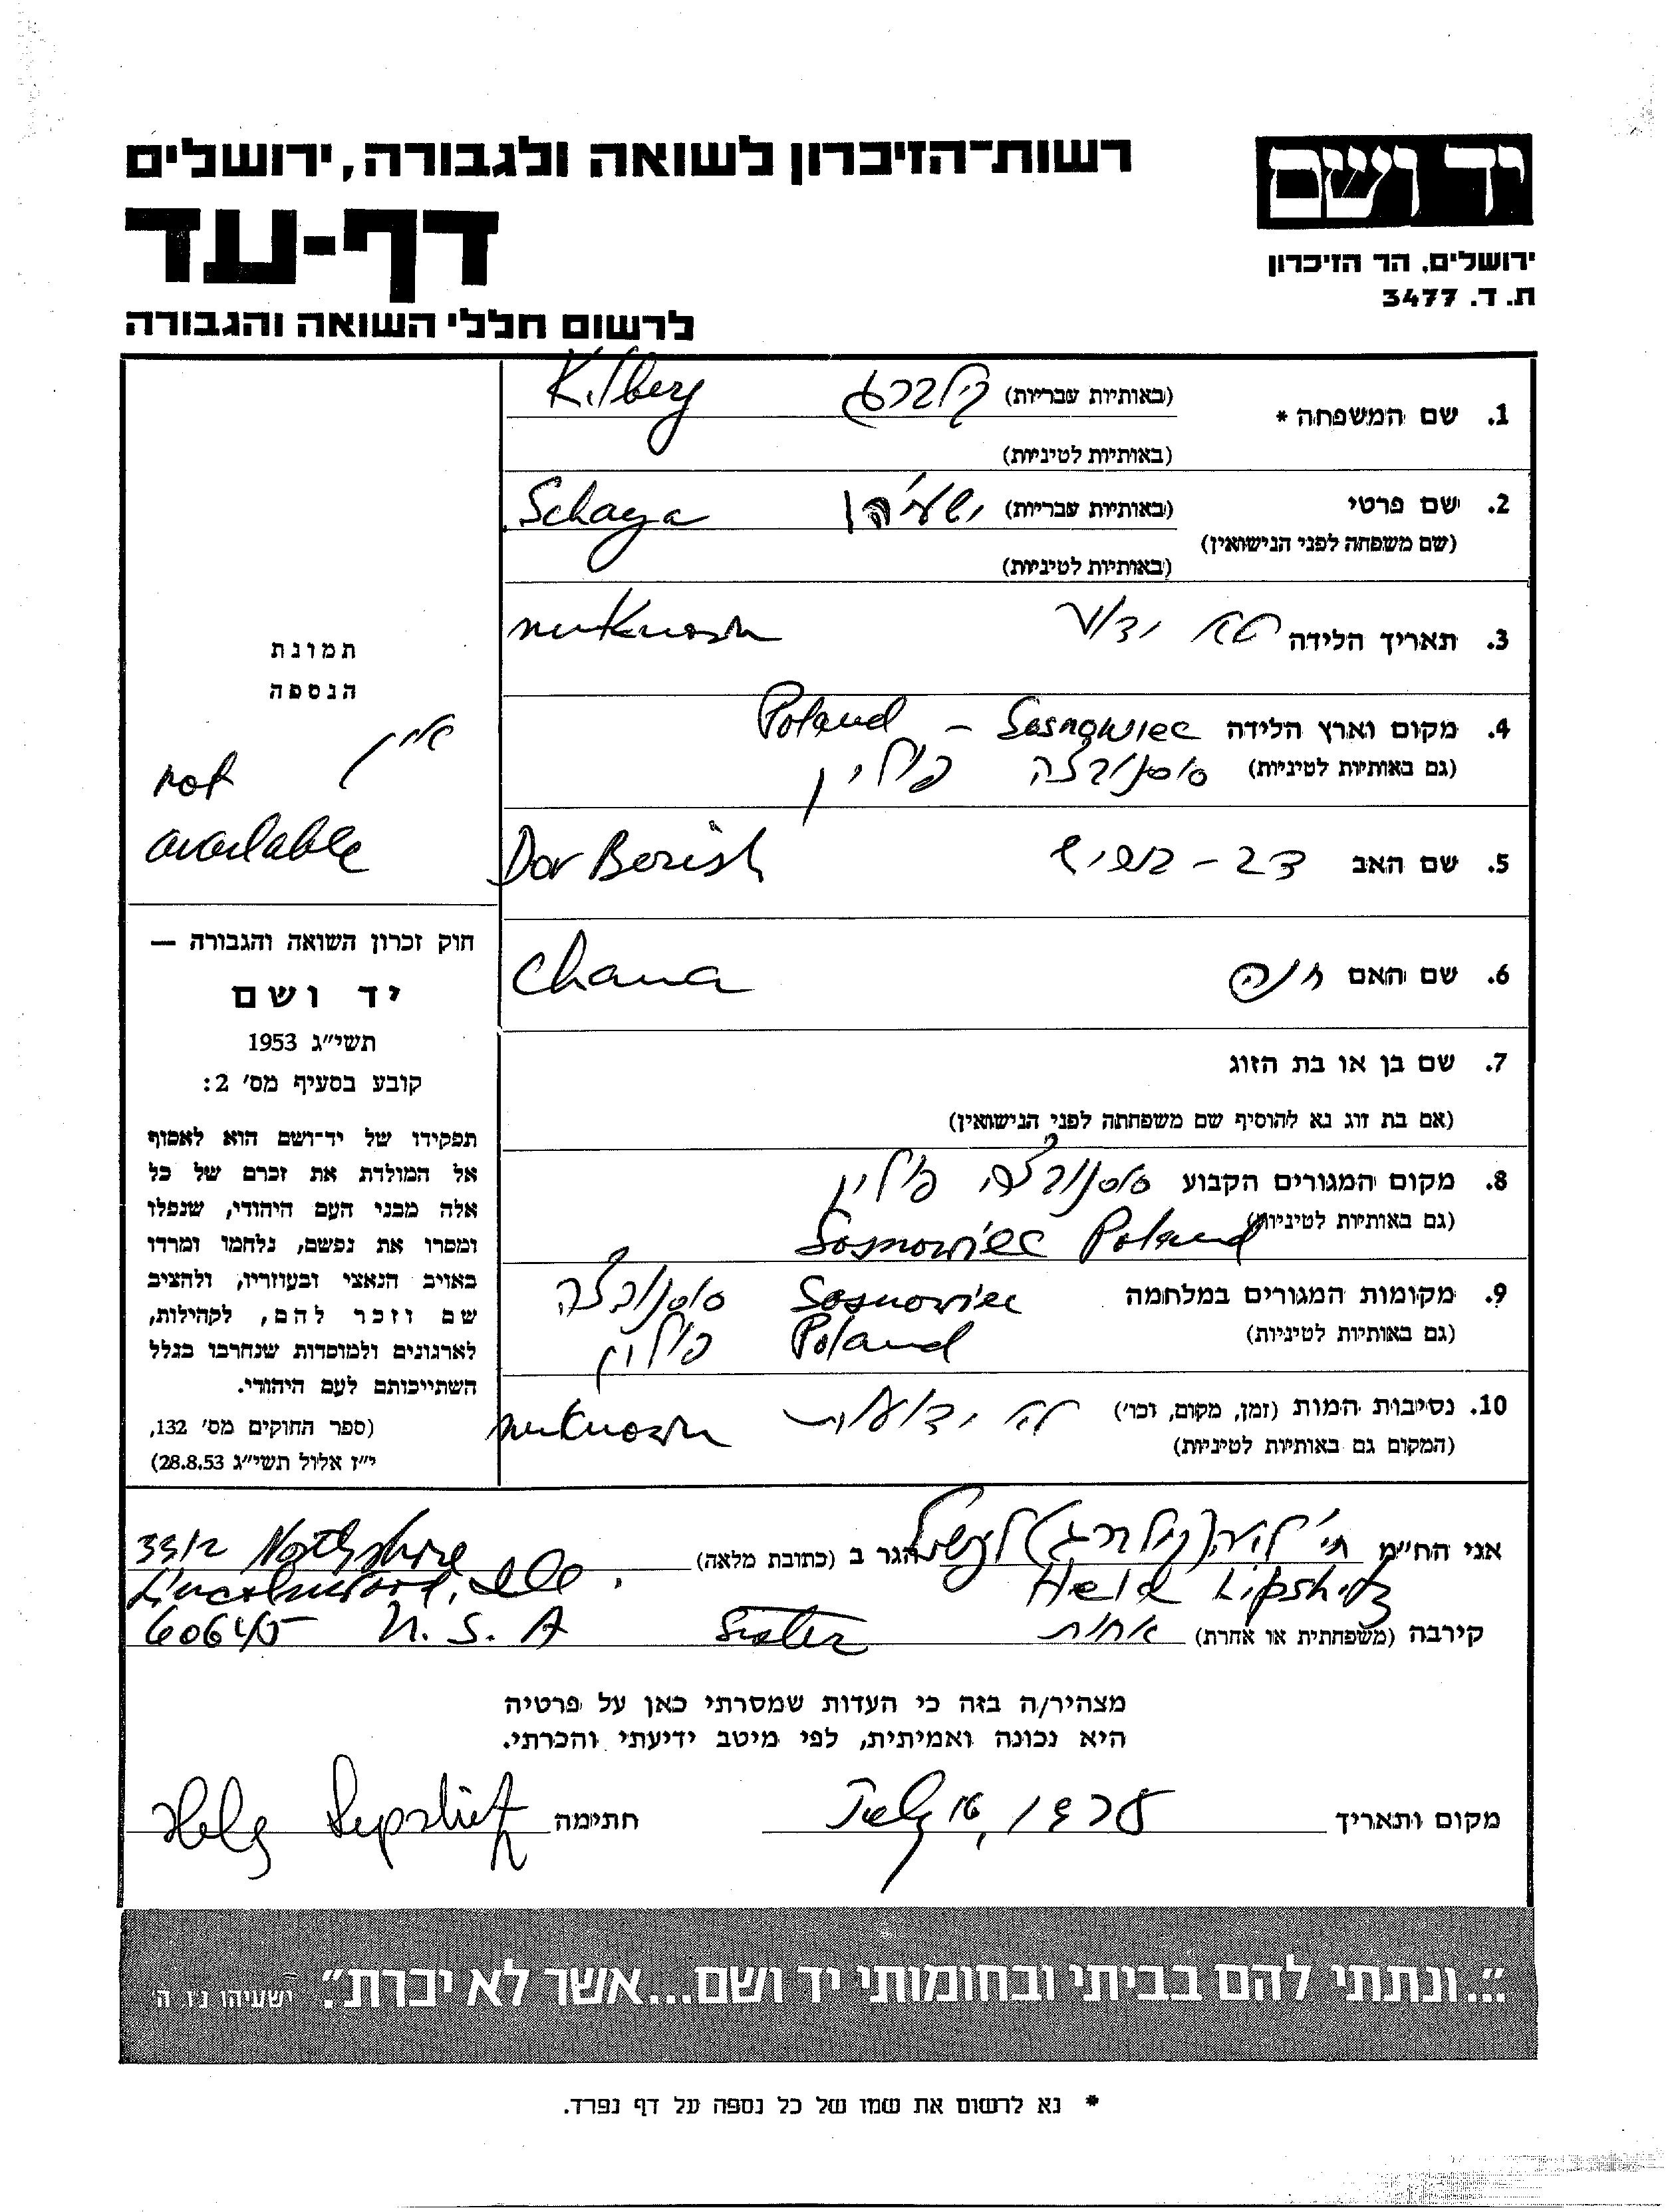 רשות־הזיכרון לשואה ולגבורה, ירושלים
יד ושם
דף-עד
ירושלים, הר הזיכרון
ת. ד. 3477
לרשום חללי השואה והגבורה
1. שם המשפחה * (באותיות עבריות) קילברג Kilberg
(באותיות לטיניות)
2. שם פרטי (באותיות עבריות) ישעיהו Schaya
(שם משפחה לפני הנישואין)
(באותיות לטיניות)
3. תאריך הלידה לא ידוע unknown
4. מקום וארץ הלידה Sosnowiec - Poland
(גם באותיות לטיניות) סוסנוביצה פולין
5. שם האב דב - בעריש Dov Berish
6. שם האם חנה Chana
7. שם בן או בת הזוג
(אם בת זוג נא להוסיף שם משפחתה לפני הנישואין)
8. מקום המגורים הקבוע סוסנוביצה פולין
(גם באותיות לטיניות) Sosnowiec Poland
9. מקומות המגורים במלחמה Sosnowiec סוסנוביצה
(גם באותיות לטיניות) Poland פולין
10. נסיבות המות (זמן, מקום, וכו׳) לא ידועות unknown
(המקום גם באותיות לטיניות)
תמונת
הנספה
אין
not
available
חוק זכרון השואה והגבורה —
יד ושם
תשי״ג 1953
קובע בסעיף מס׳ 2:
תפקידו של יד־ושם הוא לאסוף
אל המולדת את זכרם של כל
אלה מבני העם היהודי, שנפלו
ומסרו את נפשם, נלחמו ומרדו
באויב הנאצי ובעוזריו, ולהציב
שם וזכר להם, לקהילות,
לארגונים ולמוסדות שנחרבו בגלל
השתייכותם לעם היהודי.
(ספר החוקים מס׳ 132,
י״ז אלול תשי״ג 28.8.53)
אני הח״מ (קילברג) הגר ב (כתובת מלאה) 3312 Northshore
Lipshitz Lincolnwood, Ill.
קירבה (משפחתית או אחרת) אחות Sister 60645 U. S. A
מצהיר/ה בזה כי העדות שמסרתי כאן על פרטיה
היא נכונה ואמיתית, לפי מיטב ידיעתי והכרתי.
מקום ותאריך July 16, 1978 חתימה Lipshitz
״...ונתתי להם בביתי ובחומותי יד ושם...אשר לא יכרת״. ישעיהו נ״ו, ה׳
* נא לרשום את שמו של כל נספה על דף נפרד.